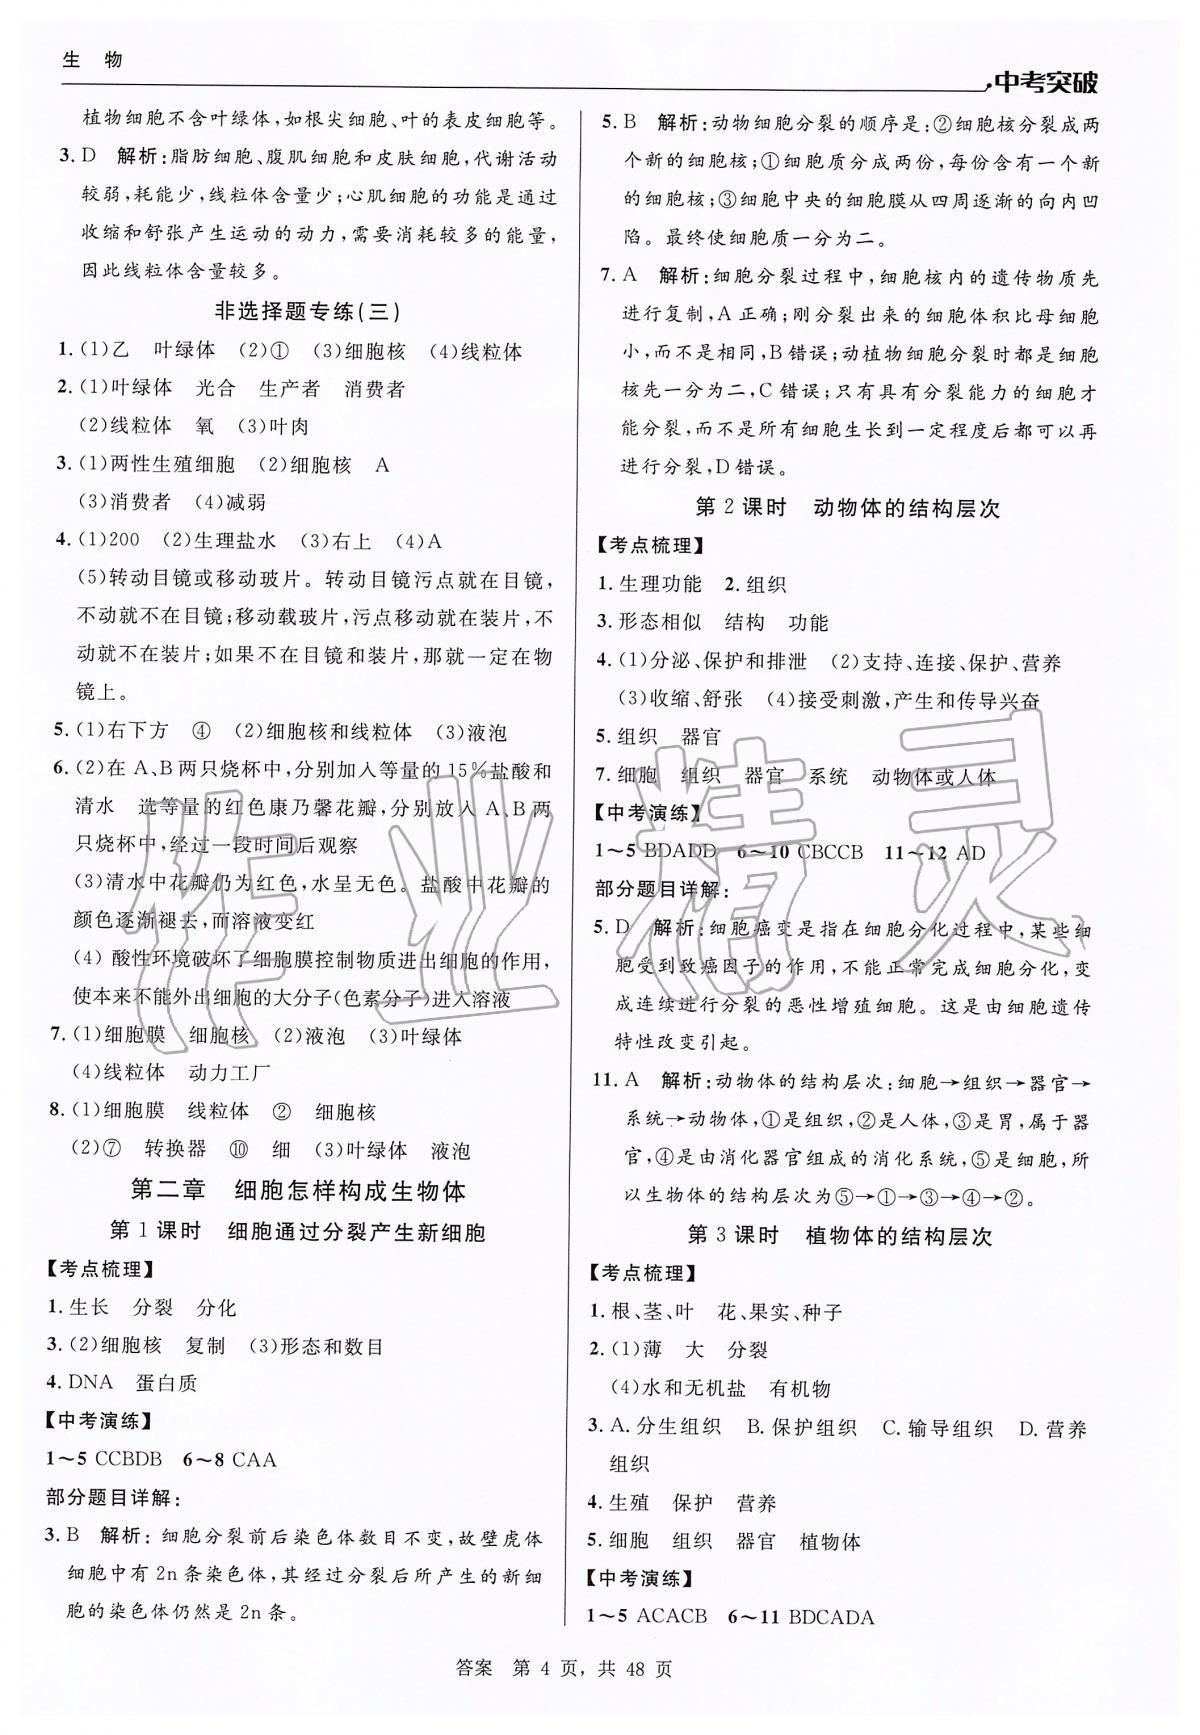 生 物
中考突破
植物细胞不含叶绿体,如根尖细胞、叶的表皮细胞等。
3. D 解析:脂肪细胞、腹肌细胞和皮肤细胞,代谢活动
较弱,耗能少,线粒体含量少;心肌细胞的功能是通过
收缩和舒张产生运动的动力,需要消耗较多的能量,
因此线粒体含量较多。
非选择题专练(三)
1. (1)乙 叶绿体 (2)① (3)细胞核 (4)线粒体
2. (1)叶绿体 光合 生产者 消费者
(2)线粒体 氧 (3)叶肉
3. (1)两性生殖细胞 (2)细胞核 A
(3)消费者 (4)减弱
4. (1)200 (2)生理盐水 (3)右上 (4)A
(5)转动目镜或移动玻片。转动目镜污点就在目镜,
不动就不在目镜;移动载玻片,污点移动就在装片,不
动就不在装片;如果不在目镜和装片,那就一定在物
镜上。
5. (1)右下方 ④ (2)细胞核和线粒体 (3)液泡
6. (2)在 A、B两只烧杯中,分别加入等量的15%盐酸和
清水 选等量的红色康乃馨花瓣,分别放入 A、B两
只烧杯中,经过一段时间后观察
(3)清水中花瓣仍为红色,水呈无色。盐酸中花瓣的
颜色逐渐褪去,而溶液变红
(4) 酸性环境破坏了细胞膜控制物质进出细胞的作用,
使本来不能外出细胞的大分子(色素分子)进入溶液
7. (1)细胞膜 细胞核 (2)液泡 (3)叶绿体
(4)线粒体 动力工厂
8. (1)细胞膜 线粒体 ② 细胞核
(2)⑦ 转换器 ⑩ 细 (3)叶绿体 液泡
第二章 细胞怎样构成生物体
第1课时 细胞通过分裂产生新细胞
【考点梳理】
1. 生长 分裂 分化
3. (2)细胞核 复制 (3)形态和数目
4. DNA 蛋白质
【中考演练】
1~5 CCBDB 6~8 CAA
部分题目详解:
3. B 解析:细胞分裂前后染色体数目不变,故壁虎体
细胞中有2n条染色体,其经过分裂后所产生的新细
胞的染色体仍然是2n条。
5. B 解析:动物细胞分裂的顺序是:②细胞核分裂成两
个新的细胞核;①细胞质分成两份,每份含有一个新
的细胞核;③细胞中央的细胞膜从四周逐渐的向内凹
陷。最终使细胞质一分为二。
7. A 解析:细胞分裂过程中,细胞核内的遗传物质先
进行复制,A正确;刚分裂出来的细胞体积比母细胞
小,而不是相同,B错误;动植物细胞分裂时都是细胞
核先一分为二,C错误;只有具有分裂能力的细胞才
能分裂,而不是所有细胞生长到一定程度后都可以再
进行分裂,D错误。
第2课时 动物体的结构层次
【考点梳理】
1. 生理功能 2. 组织
3. 形态相似 结构 功能
4. (1)分泌、保护和排泄 (2)支持、连接、保护、营养
(3)收缩、舒张 (4)接受刺激,产生和传导兴奋
5. 组织 器官
7. 细胞 组织 器官 系统 动物体或人体
【中考演练】
1~5 BDADD 6~10 CBCCB 11~12 AD
部分题目详解:
5. D 解析:细胞癌变是指在细胞分化过程中,某些细
胞受到致癌因子的作用,不能正常完成细胞分化,变
成连续进行分裂的恶性增殖细胞。这是由细胞遗传
特性改变引起。
11. A 解析:动物体的结构层次:细胞→组织→器官→
系统→动物体,①是组织,②是人体,③是胃,属于器
官,④是由消化器官组成的消化系统,⑤是细胞,所
以生物体的结构层次为⑤→①→③→④→②。
第3课时 植物体的结构层次
【考点梳理】
1. 根、茎、叶 花、果实、种子
2. (1)薄 大 分裂
(4)水和无机盐 有机物
3. A. 分生组织 B. 保护组织 C. 输导组织 D. 营养
组织
4. 生殖 保护 营养
5. 细胞 组织 器官 植物体
【中考演练】
1~5 ACACB 6~11 BDCADA
答案 第 4 页,共 48 页
作业精灵